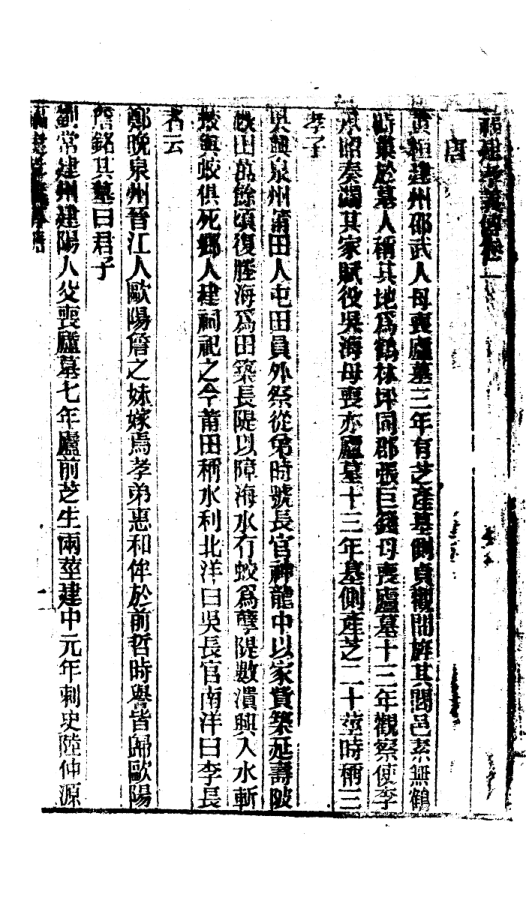 福建孝義傳卷一
唐
黃栢建州邵武人母喪廬墓三年有芝產墓側貞觀間旌其閭邑素無鶴
巢於墓人稱其地爲鶴林坪同郡張巨錢母喪廬墓十三年觀察使李
承昭奏蠲其家賦役吳海母喪亦廬墓十三年墓側產芝二十莖時稱三
孝子
吳興泉州莆田人屯田員外祭從弟時號長官神龍中以家貲築延壽陂
田萬餘頃復塍海爲田築長隄以障海水冇蛟爲孽隄數潰興人水斬
蛟與蛟俱死鄉人建祠祀之今莆田稱水利北洋曰吳長官南洋曰李長
者云
鄭晚泉州晉江人歐陽詹之妹嫁焉孝弟惠和侔於前哲時譽皆歸歐陽
詹銘其墓曰君子
劉常建州建陽人父喪廬墓七年廬前芝生兩莖建中元年刺史陸仲源